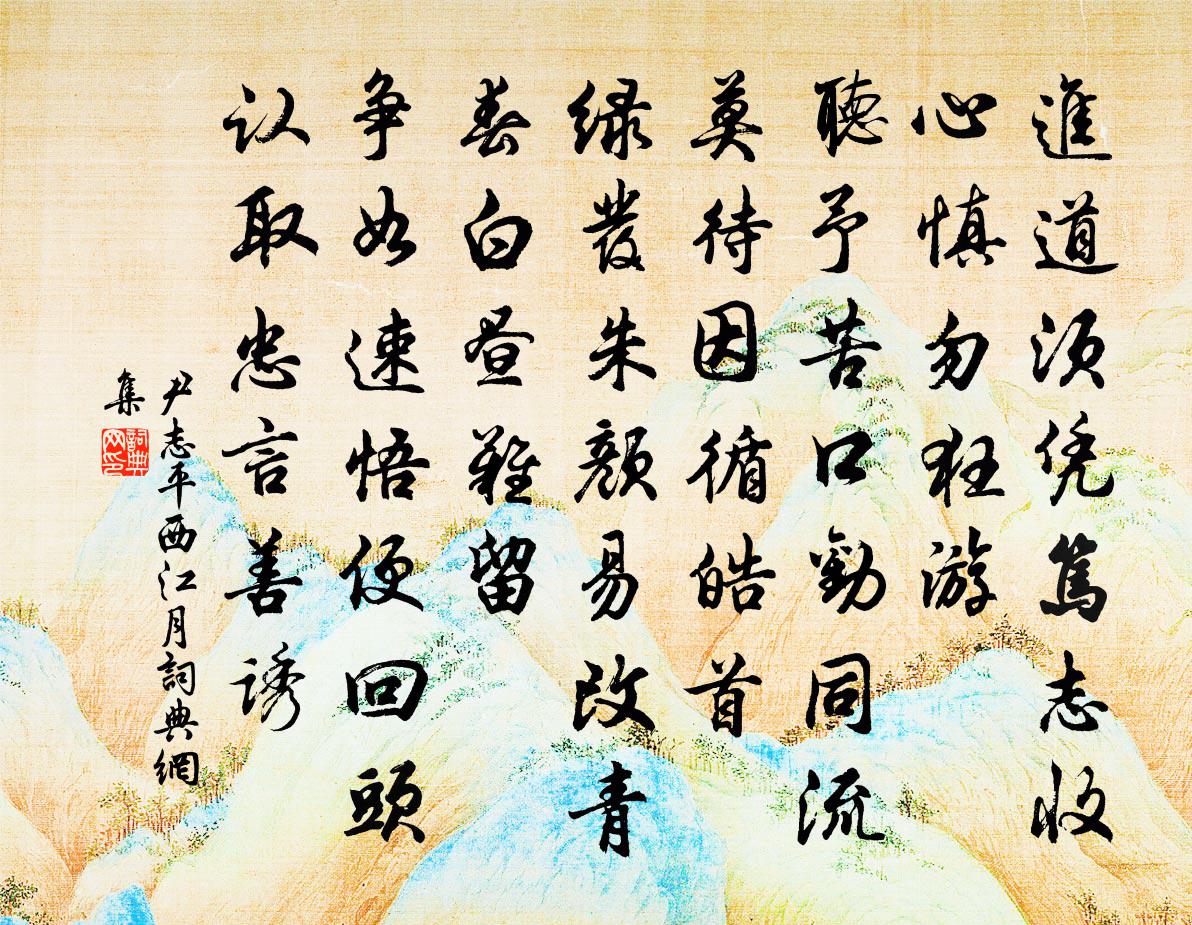 進道須凭篤志收
心慎勿狂游
聽予苦口勸同流
莫待因循皓首
绿發朱顔易改青
春白昼難留
争如速悟便回頭
认取忠言善诱
尹志平西江月詞典網
集
詞典
网印